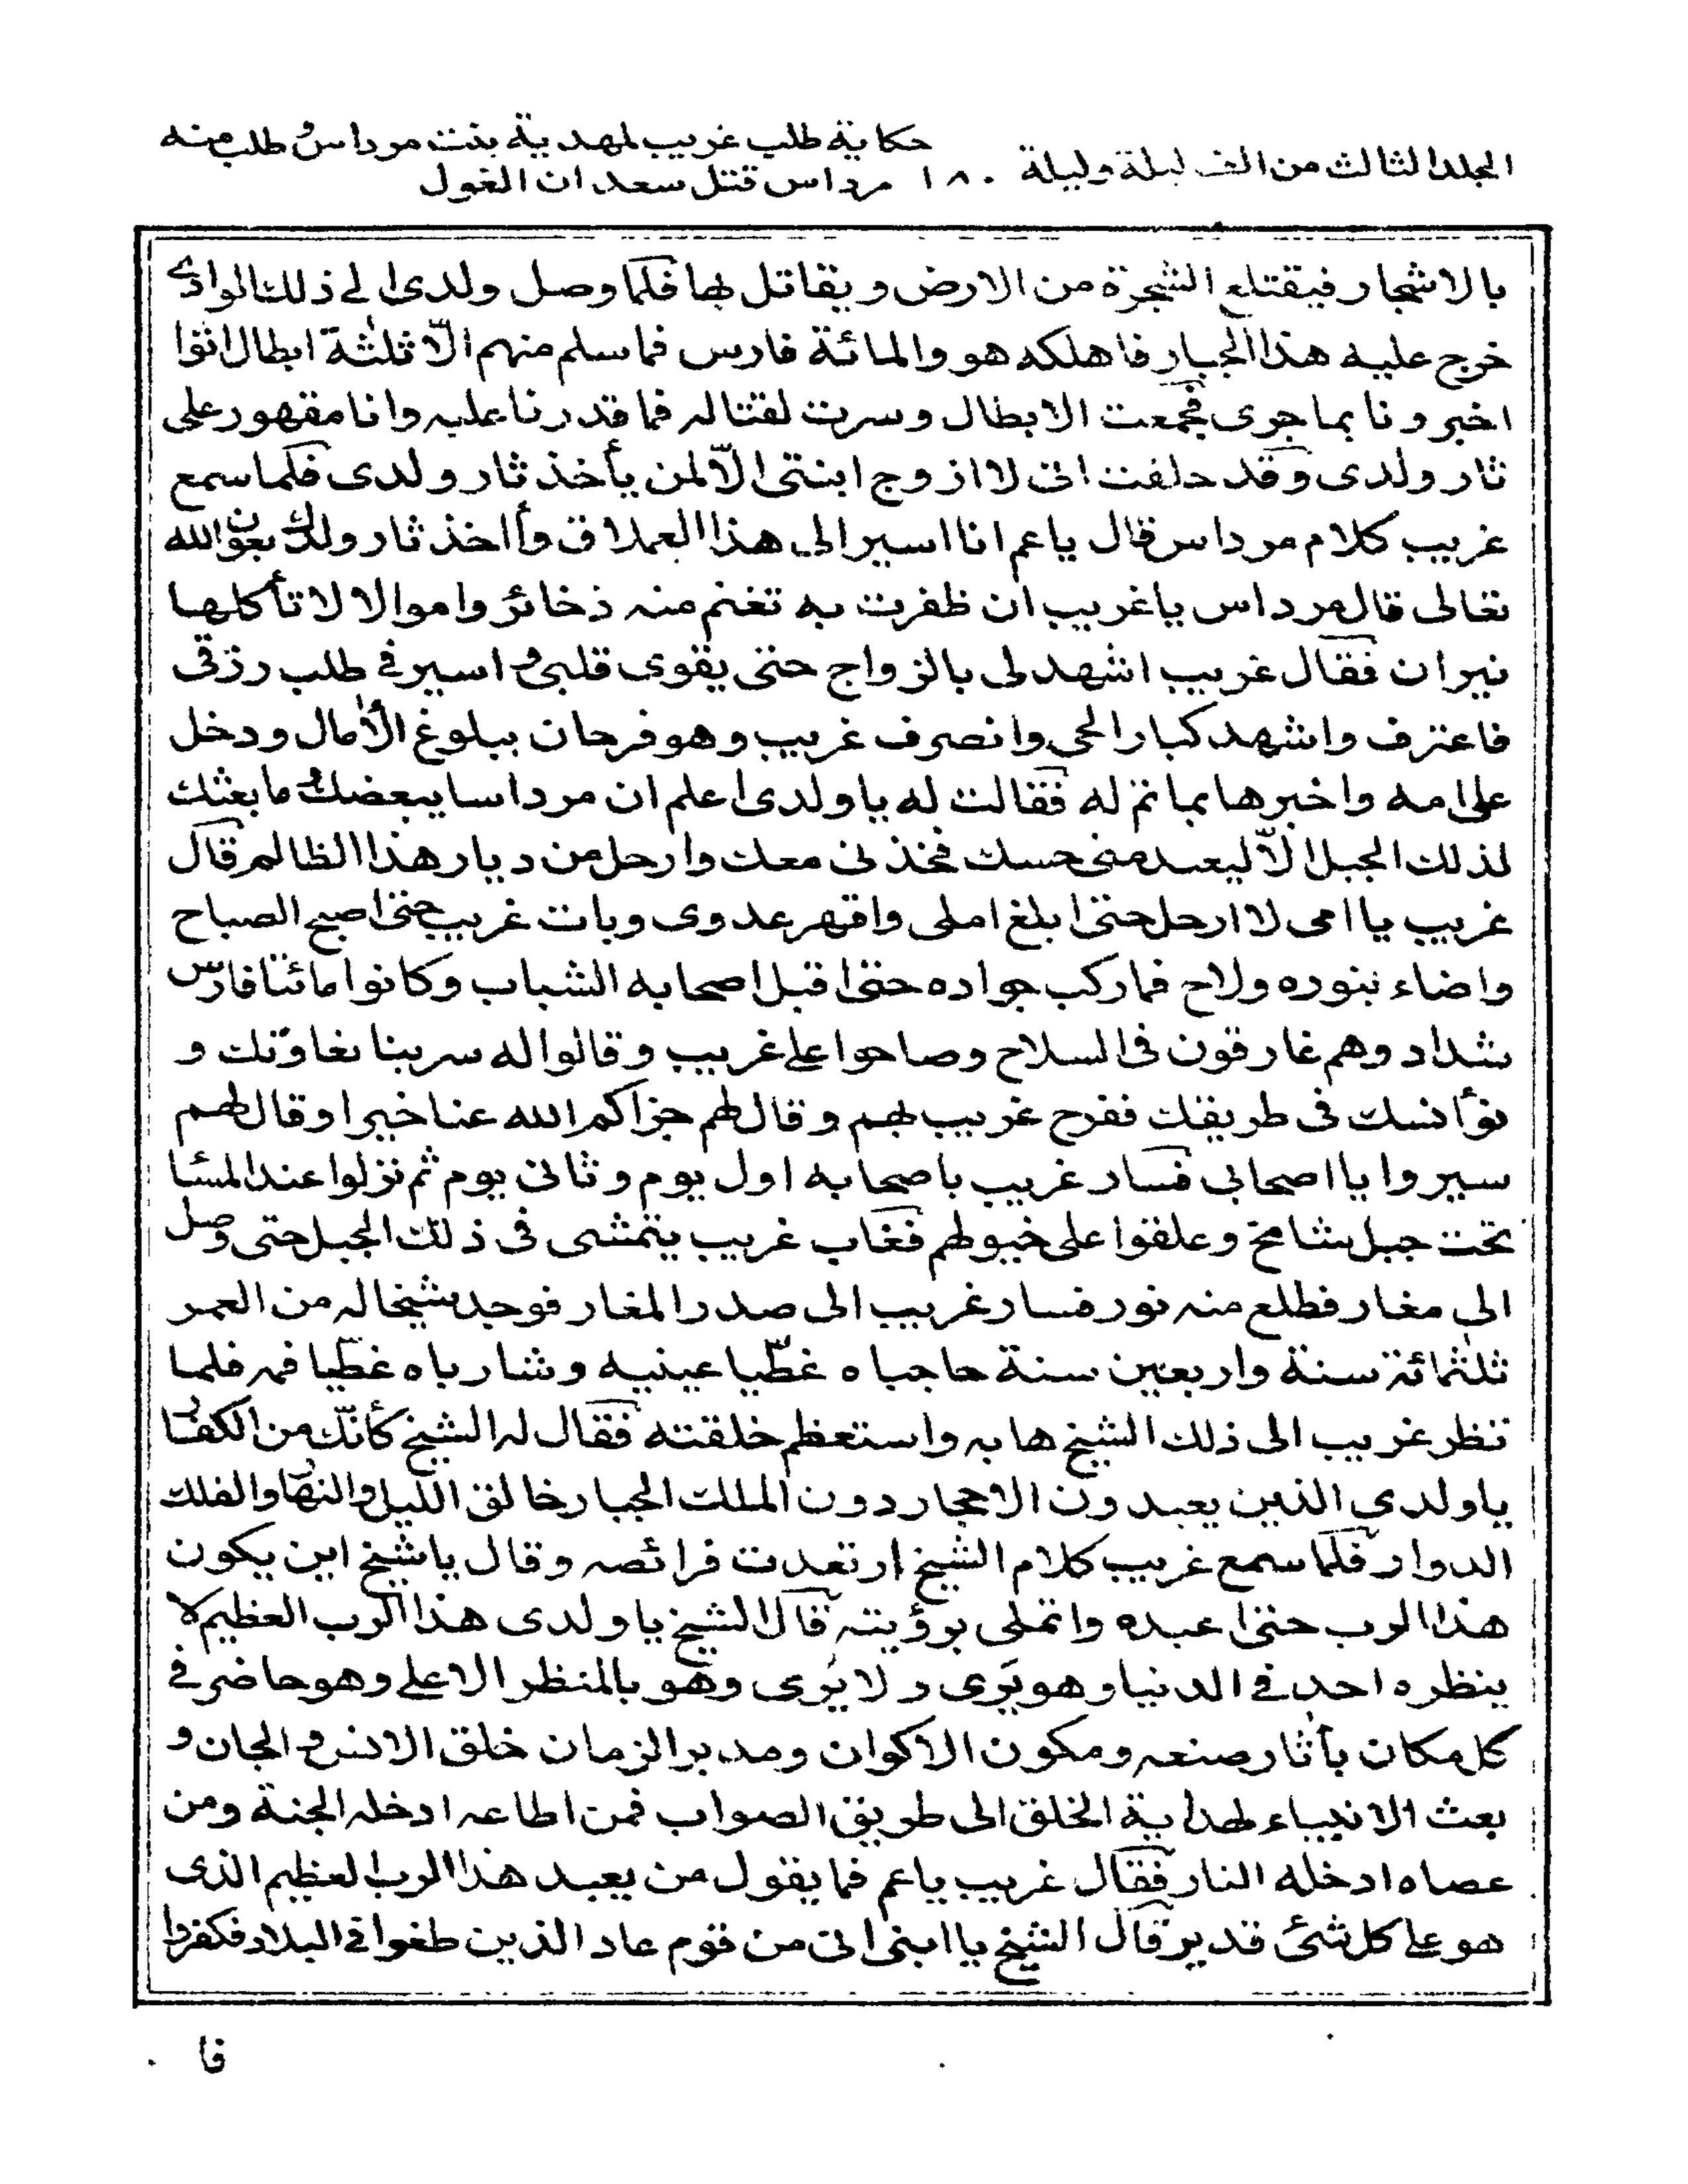 المجلد الثالث من الف ليلة وليلة ١٨٠ حكاية طلب غريب لمهدية بنت مرداس و طلب منه
مرداس قتل سعدان الغول
بالاشجار فيقتلع الشجرة من الارض و يقاتل بها فلما وصل ولدى الے ذلك الوادے
خرج عليه هذا الجبار فاهلكه هو والمائة فارس فما سلم منهم الّا ثلثة ابطال اتوا
اخبرونا بما جرى فجمعت الابطال وسرت لقتاله فما قدرنا عليه وانا مقهور على
ثار ولدى وقد حلفت انى لا ازوج ابنتى الّا لمن يأخذ ثار ولدى فلما سمع
غريب كلام مرداس قال ياعم انا اسير الى هذا العملاق وأاخذ ثار ولدك بعون الله
تعالى قال مرداس ياغريب ان ظفرت به تغنم منه ذخائر واموالا لا تأكلها
نيران فقال غريب اشهد لى بالزواج حتى يقوى قلبى و اسير فے طلب رزقى
فاعترف واشهد كبار الحى وانصرف غريب وهو فرحان ببلوغ الأمال ودخل
على امه واخبرها بما تم له فقالت له ياولدى اعلم ان مرداسا يبغضك و ما بعثك
لذلك الجبل الّا ليعدمنى حسك فخذنى معك وارحل من ديار هذا الظالم قال
غريب يا امى لا ارحل حتى ابلغ املى واقهر عدوى وبات غريب حتى اصبح الصباح
واضاء بنوره ولاح فما ركب جواده حتى اقبل اصحابه الشباب وكانوا مائتا فارس
شداد وهم غارقون فى السلاح وصاحوا علے غريب وقالوا له سر بنا نعاونك و
نوأنسك فى طريقك ففرح غريب بهم وقال لهم جزاكم الله عنا خيرا وقال لهم
سيروا يا اصحابى فسار غريب باصحابه اول يوم وثانى يوم ثم نزلوا عند المسا
تحت جبل شامخ وعلقوا على خيولهم فغاب غريب يتمشى فى ذلك الجبل حتى وصل
الى مغار فطلع منه نور فسار غريب الى صدر المغار فوجد شيخا له من العمر
ثلثمائة سنة واربعين سنة حاجباه غطّيا عينيه وشارباه غطّيا فمه فلما
نظر غريب الى ذلك الشيخ هابه واستعظم خلقته فقال له الشيخ كأنّك من الكفار
ياولدى الذين يعبدون الاحجار دون الملك الجبار خالق الليل والنهار والفلك
الدوار فلما سمع غريب كلام الشيخ ارتعدت فرائصه وقال ياشيخ اين يكون
هذا الرب حتى اعبده واتملى برؤيته قال الشيخ ياولدى هذا الرب العظيم لا
ينظره احد فے الدنيا وهو يَرى ولا يُرى وهو بالمنظر الاعلے وهو حاضر فے
كل مكان بأثار صنعه ومكون الاكوان ومدبر الزمان خلق الانس و الجان و
بعث الانبياء لهداية الخلق الى طريق الصواب فمن اطاعه ادخله الجنة ومن
عصاه ادخله النار فقال غريب ياعم فما يقول من يعبد هذا الرب العظيم الذى
هو علے كل شئ قدير قال الشيخ يا ابنى انى من قوم عاد الذين طغوا فے البلاد فكفروا
فا